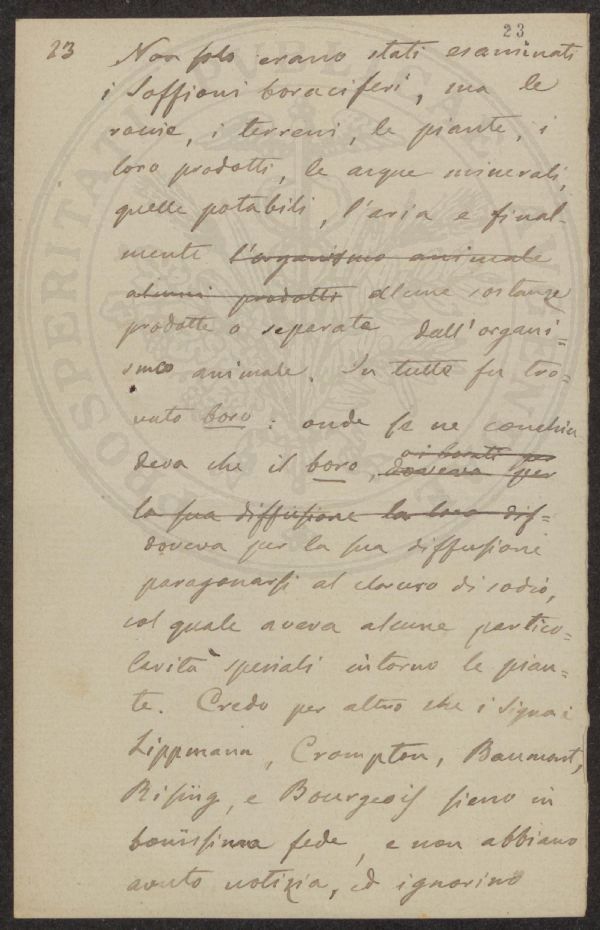 23
23
Non solo erano stati esaminati
i Soffioni boraciferi, ma le
roccie, i terreni, le piante, i
loro prodotti, le acque minerali,
quelle potabili, l'aria e final-
mente l'organismo animale
alcuni prodotti alcune sostanze
prodotte o separate dall'organi=
smo animale. In tutte fu tro=
vato boro: onde se ne conchiu
deva che il boro, o i borati per
doveva per
la sua diffusione la loro dif=
doveva per la sua diffusione
paragonarsi al cloruro di sodio,
col quale aveva alcune partico=
larità speciali intorno le pian=
te. Credo per altro che i Signori
Lippmann, Crompton, Baumont,
Rising, e Bourgeois sieno in
bonissima fede, e non abbiano
avuto notizia, ed ignorino
PROSPERITATI PUBLICAE